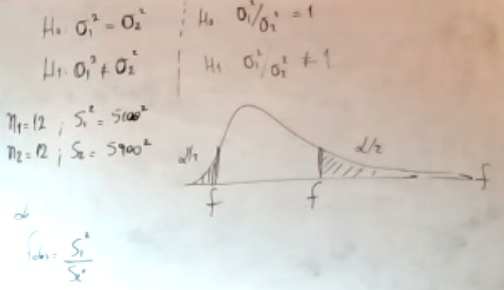 H₀: σ₁² = σ₂² H₀ σ₁²/σ₂² = 1
H₁: σ₁² ≠ σ₂² H₁ σ₁²/σ₂² ≠ 1
n₁=12 ; S₁² = 5100²
n₂=12 ; S₂ = 5900²
α/2 α/2
f f f
α
f obs = S₁²/S₂²